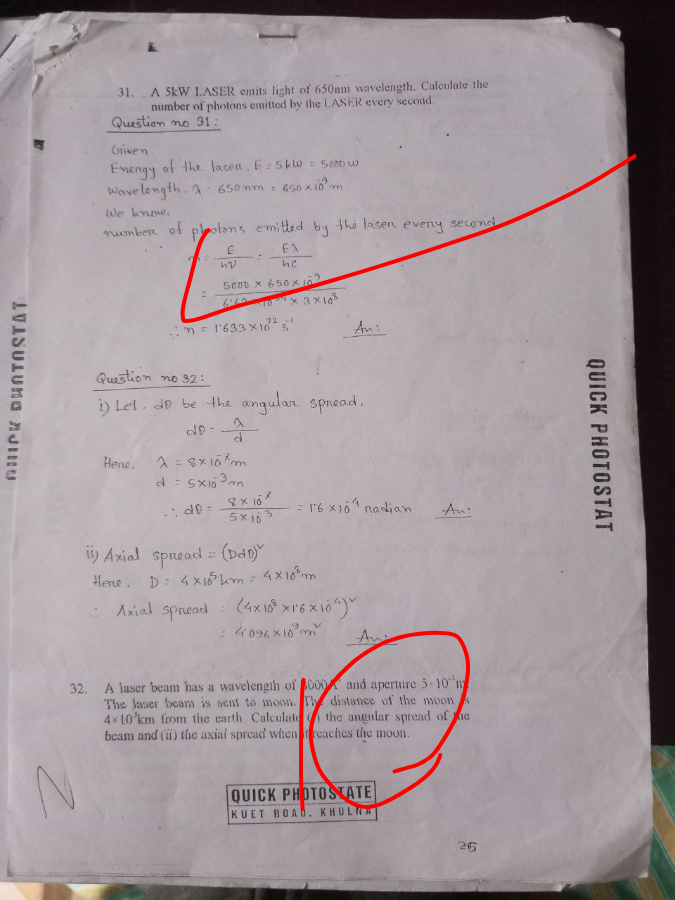 31. A 5kW LASER emits light of 650nm wavelength. Calculate the
number of photons emitted by the LASER every second.
Question no 31:
Given,
Energy of the laser, E = 5kW = 5000 W
Wavelength, λ = 650 nm = 650×10⁻⁹ m
We know,
number of photons emitted by the laser every second
n = E/hν = Eλ/hc
= 5000 × 650×10⁻⁹ / × 3×10⁸
∴ n = 1.633×10²² s⁻¹ Ans:
Question no 32:
i) Let, dθ be the angular spread,
dθ = λ/d
Here, λ = 8×10⁻⁷ m
d = 5×10⁻³ m
∴ dθ = 8×10⁻⁷ / 5×10⁻³ = 1.6×10⁻⁴ radian Ans:
ii) Axial spread = (Ddθ)²
Here, D = 4×10⁵ km = 4×10⁸ m
∴ Axial spread = (4×10⁸ × 1.6×10⁻⁴)²
= 4.096×10⁹ m² Ans:
32. A laser beam has a wavelength of and aperture 5×10⁻³m.
The laser beam is sent to moon. The distance of the moon is
4×10⁵km from the earth. Calculate (i) the angular spread of the
beam and (ii) the axial spread when it reaches the moon.
QUICK PHOTOSTATE
KUET ROAD, KHULNA
26
N
QUICK PHOTOSTAT
QUICK PHOTOSTAT